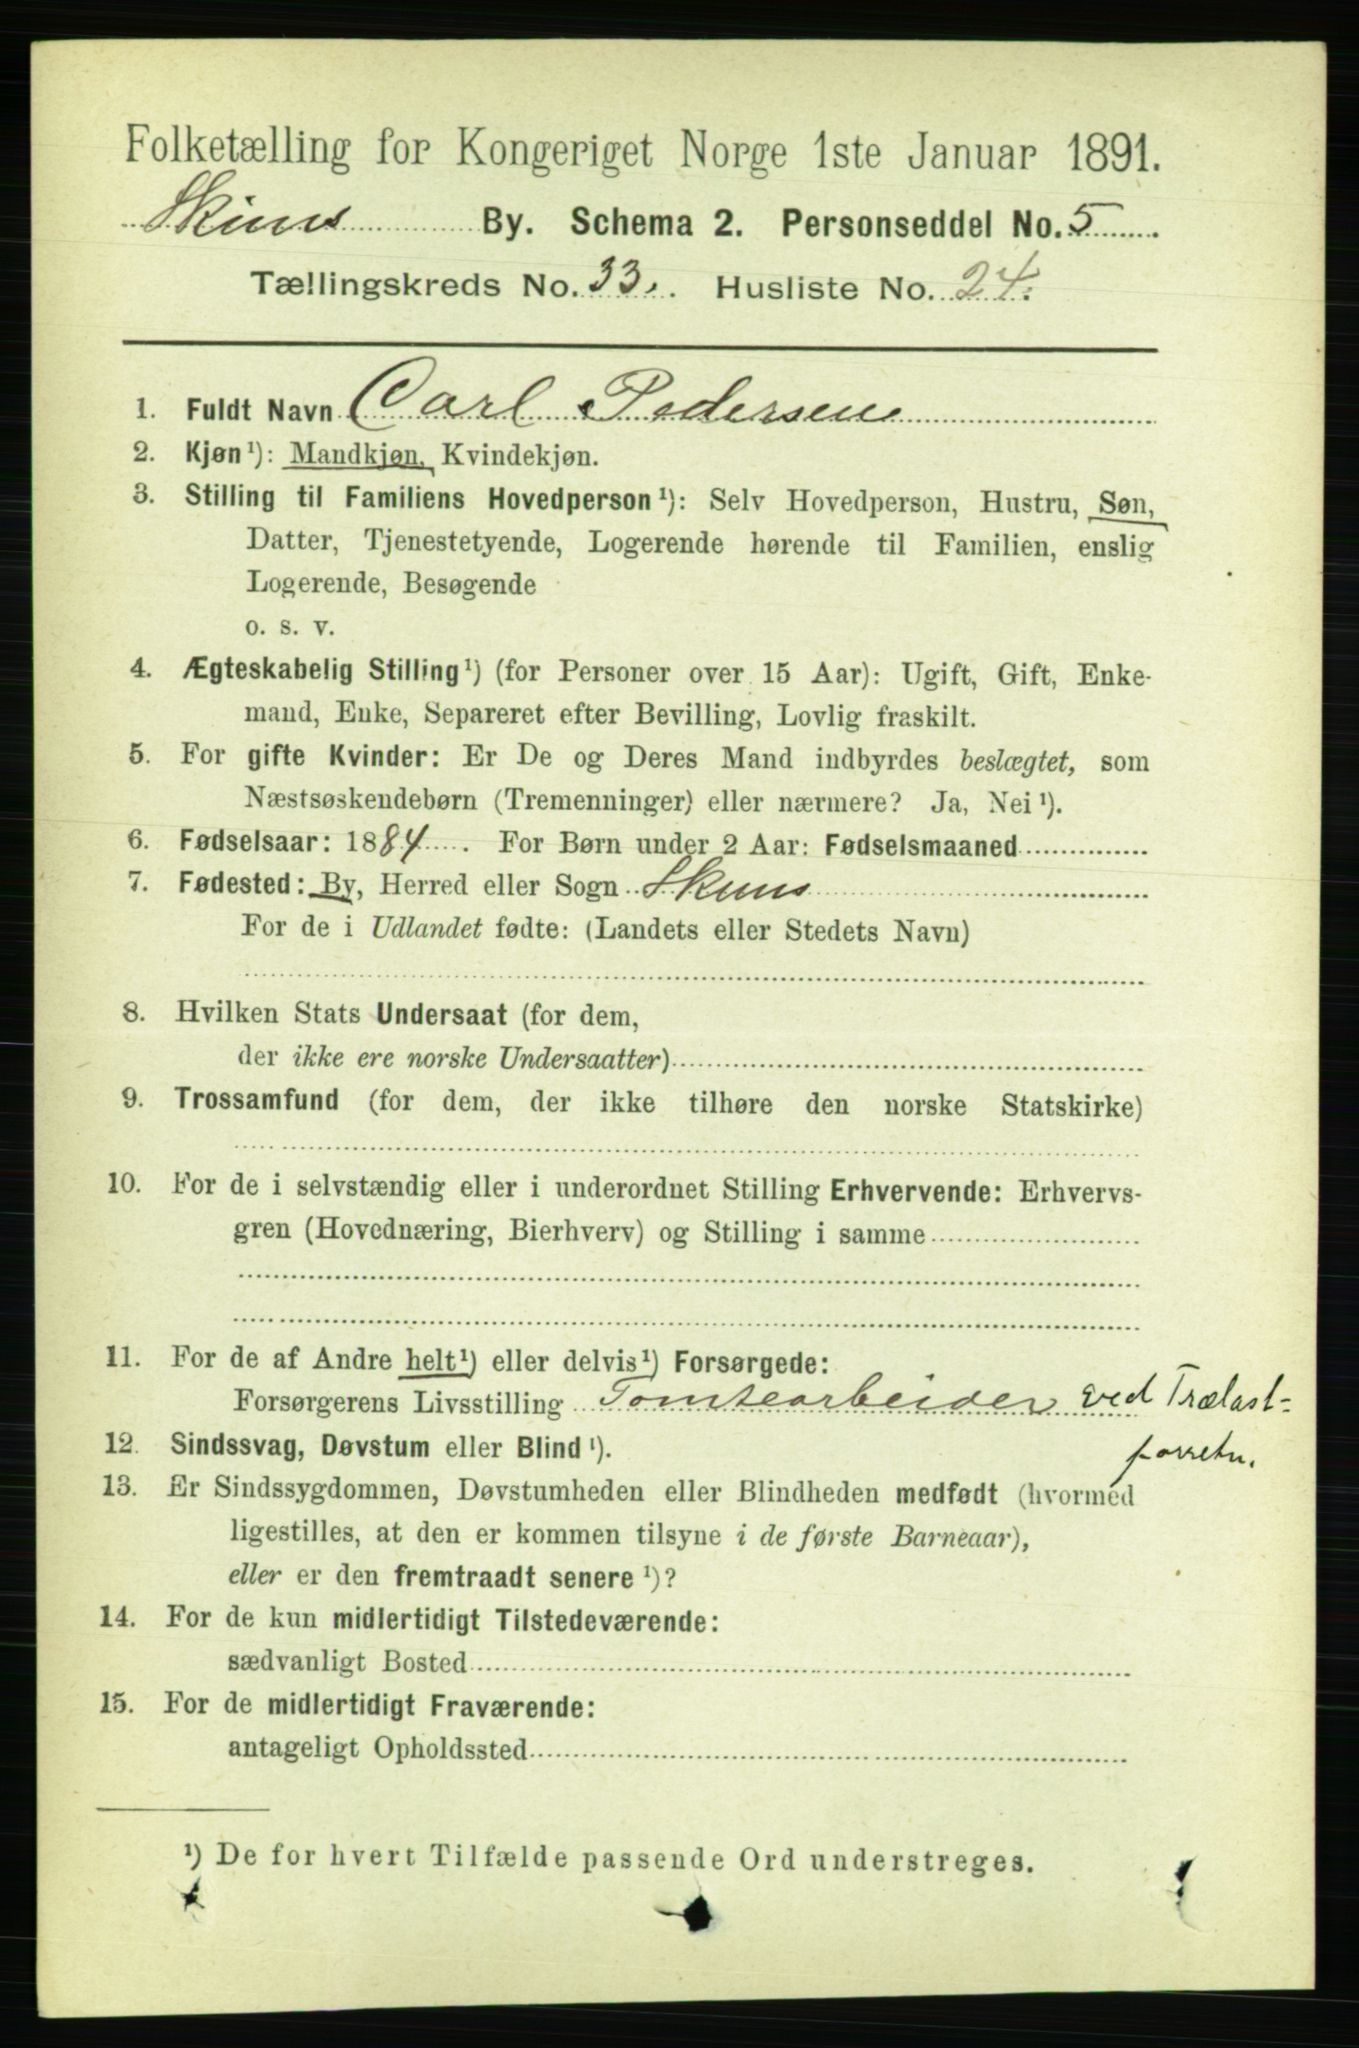 Folketælling for Kongeriget Norge 1ste Januar 1891.
Skiens By. Schema 2. Personseddel No. 5
Tællingskreds No. 33. Husliste No. 24.
1. Fuldt Navn Carl Pedersen
2. Kjøn¹): Mandkjøn, Kvindekjøn.
3. Stilling til Familiens Hovedperson¹): Selv Hovedperson, Hustru, Søn,
Datter, Tjenestetyende, Logerende hørende til Familien, enslig
Logerende, Besøgende
o. s. v.
4. Ægteskabelig Stilling¹) (for Personer over 15 Aar): Ugift, Gift, Enke-
mand, Enke, Separeret efter Bevilling, Lovlig fraskilt.
5. For gifte Kvinder: Er De og Deres Mand indbyrdes beslægtet, som
Næstsøskendebørn (Tremenninger) eller nærmere? Ja, Nei¹).
6. Fødselsaar: 1884. For Børn under 2 Aar: Fødselsmaaned
7. Fødested: By, Herred eller Sogn Skiens
For de i Udlandet fødte: (Landets eller Stedets Navn)
8. Hvilken Stats Undersaat (for dem,
der ikke ere norske Undersaatter)
9. Trossamfund (for dem, der ikke tilhøre den norske Statskirke)
10. For de i selvstændig eller i underordnet Stilling Erhvervende: Erhvervs-
gren (Hovednæring, Bierhverv) og Stilling i samme
11. For de af Andre helt¹) eller delvis¹) Forsørgede:
Forsørgerens Livsstilling Tomtearbeider ved Trælast-
forretn.
12. Sindssvag, Døvstum eller Blind¹).
13. Er Sindssygdommen, Døvstumheden eller Blindheden medfødt (hvormed
ligestilles, at den er kommen tilsyne i de første Barneaar),
eller er den fremtraadt senere¹)?
14. For de kun midlertidigt Tilstedeværende:
sædvanligt Bosted
15. For de midlertidigt Fraværende:
antageligt Opholdssted
¹) De for hvert Tilfælde passende Ord understreges.